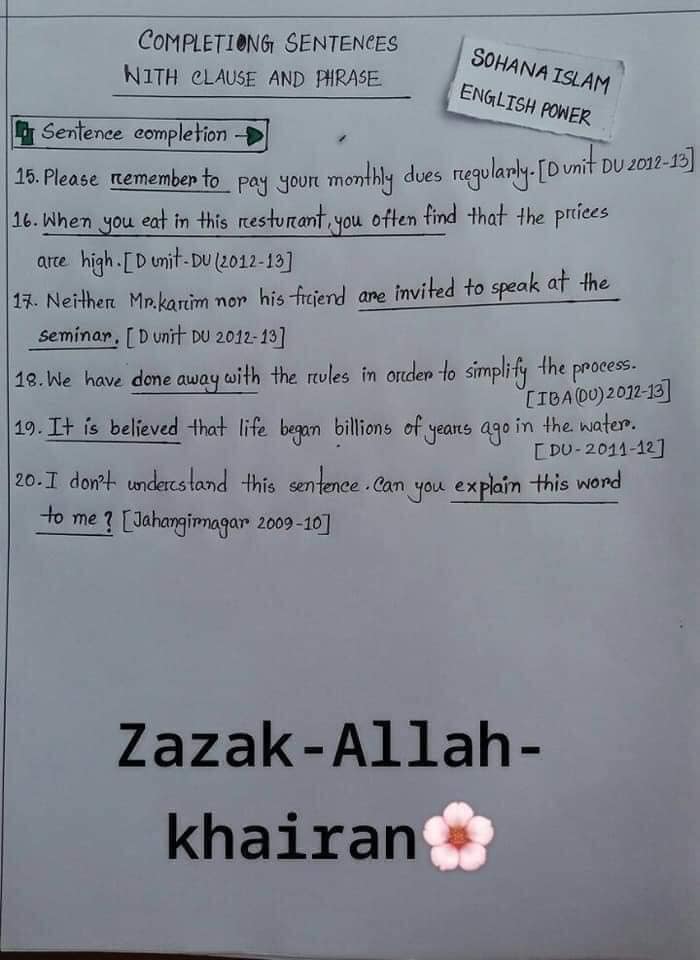 COMPLETIONG SENTENCES
WITH CLAUSE AND PHRASE
SOHANA ISLAM
ENGLISH POWER
Sentence completion
15. Please remember to pay your monthly dues regularly. [D unit DU 2012-13]
16. When you eat in this resturant, you often find that the prices
are high. [D unit-DU (2012-13]
17. Neither Mr. karim nor his friend are invited to speak at the
seminar. [D unit DU 2012-13]
18. We have done away with the rules in order to simplify the process.
[IBA(DU) 2012-13]
19. It is believed that life began billions of years ago in the water.
[DU-2011-12]
20. I don't understand this sentence. Can you explain this word
to me? [Jahangirnagar 2009-10]
Zazak-Allah-
khairan